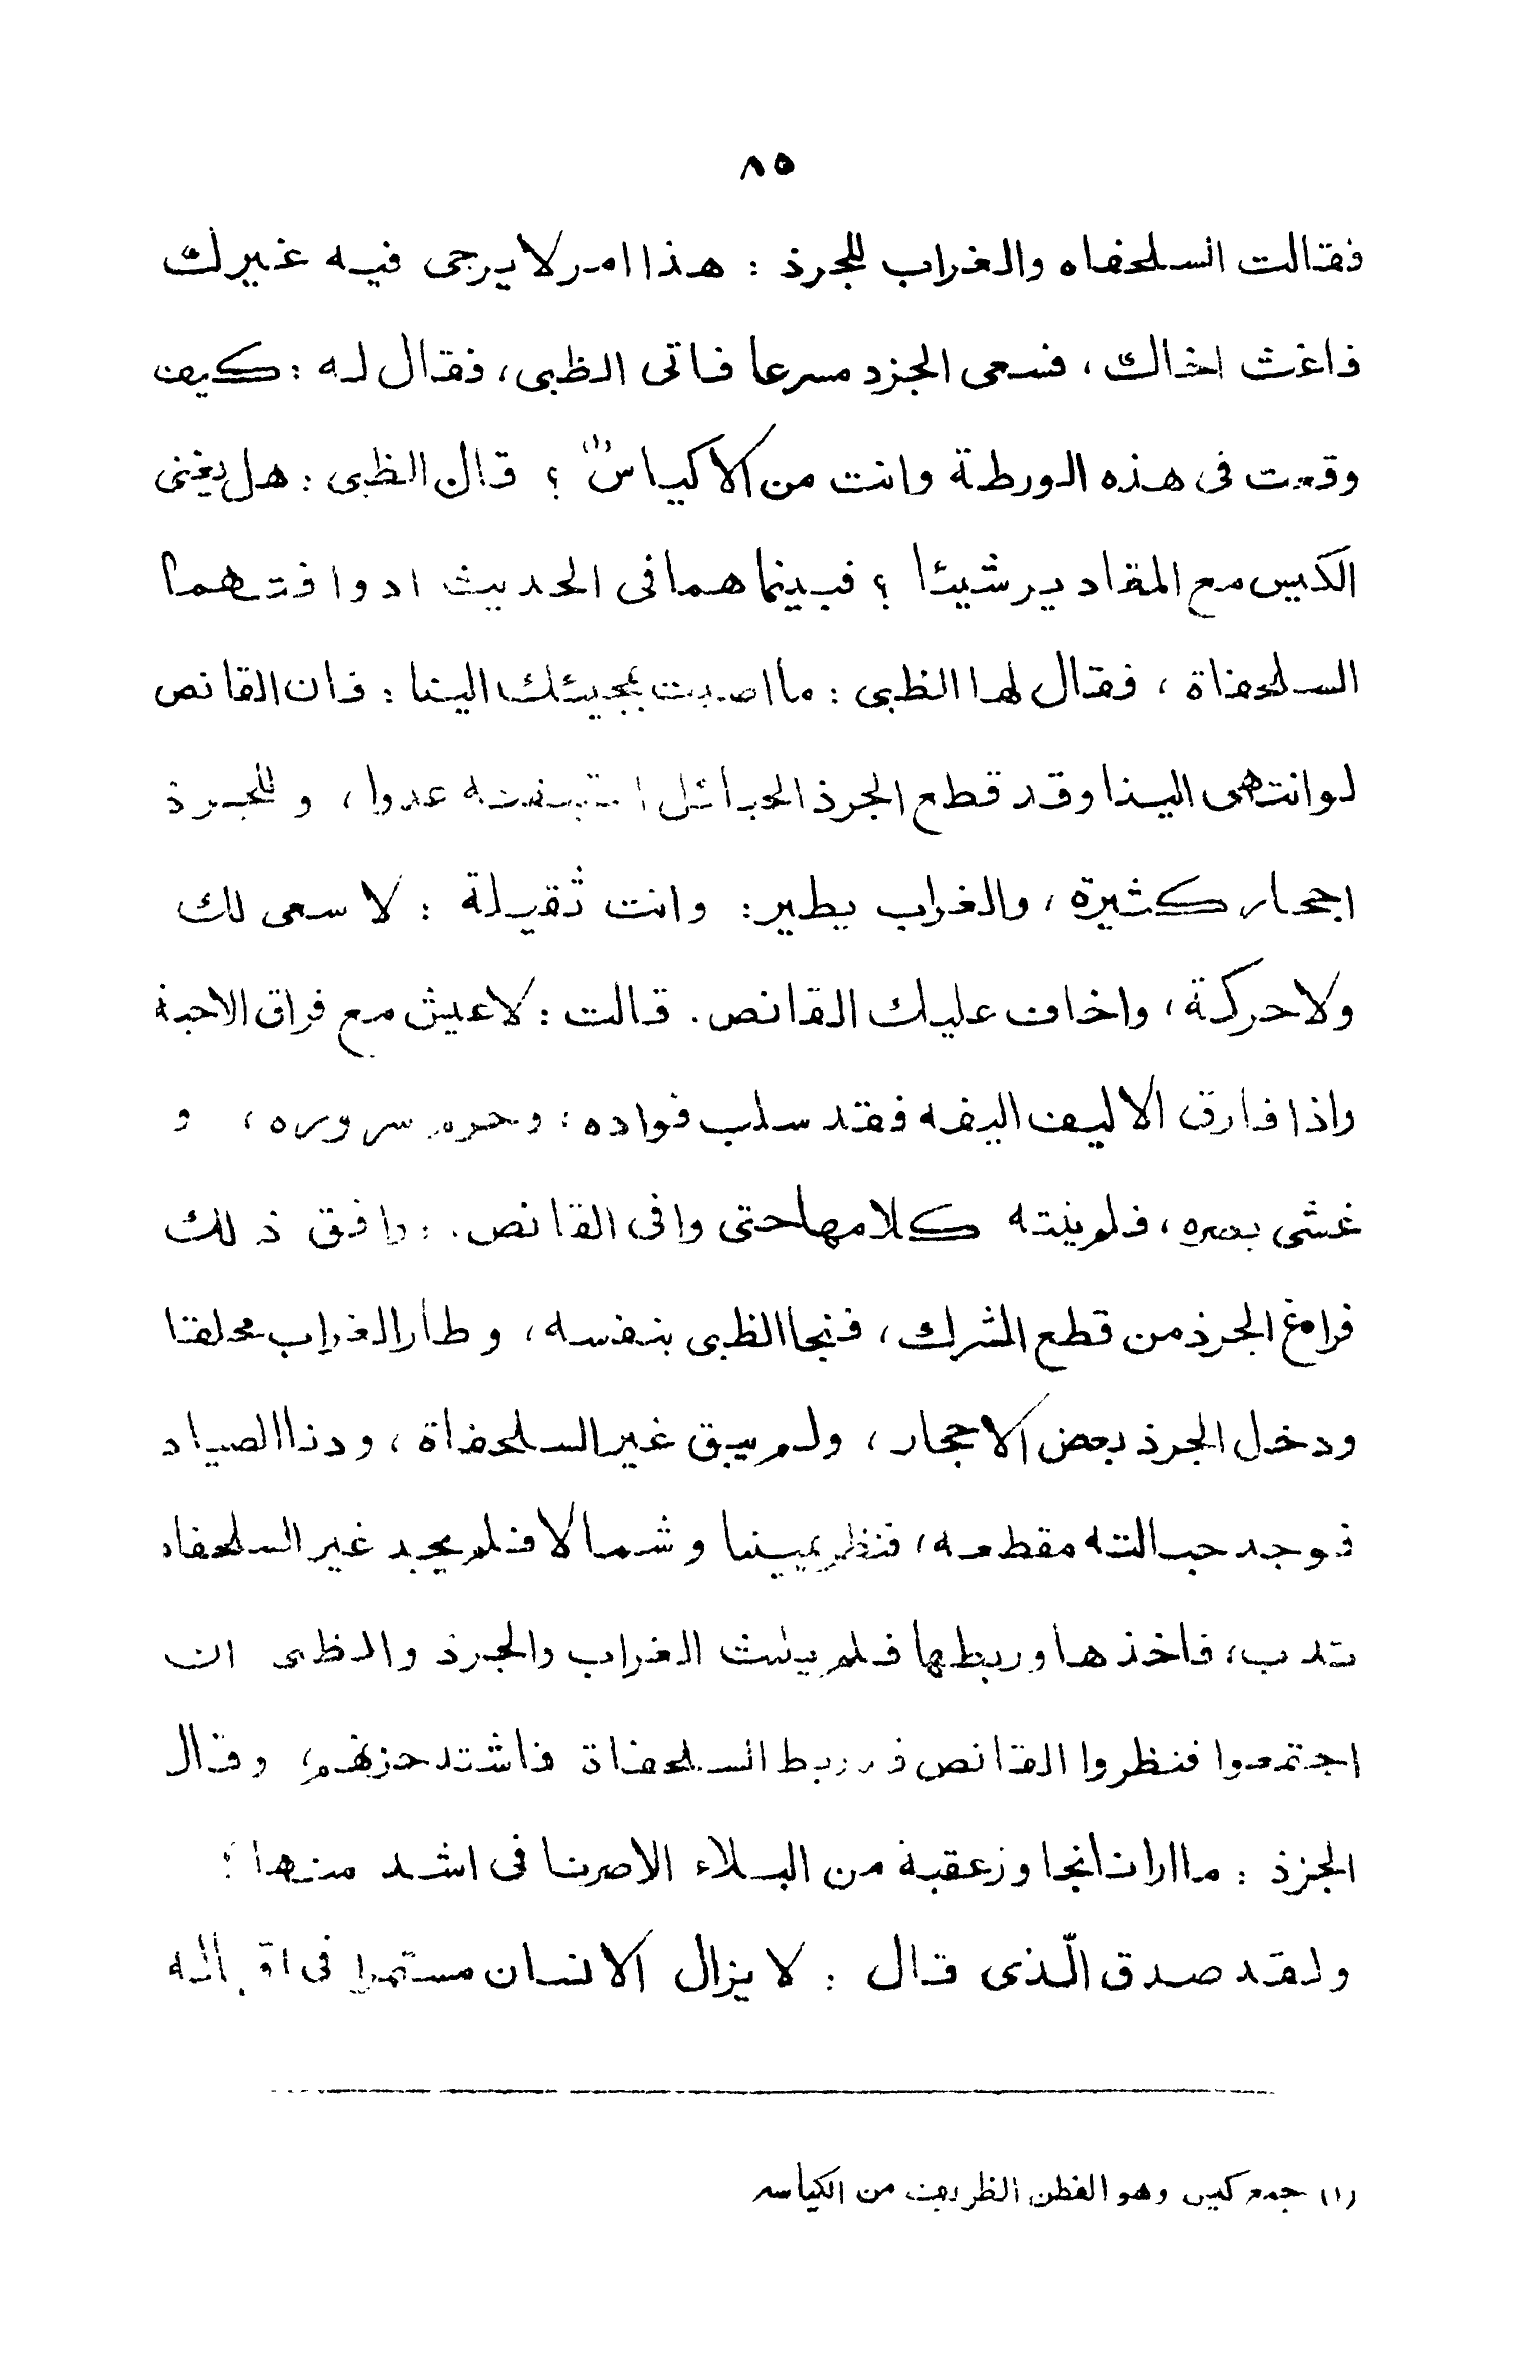 ٨٥
فقالت السلحفاه والغراب للجرذ : هذا امر لا يرجى فيه غيرك
فاغث اخاك ، فسعى الجزد مسرعا فاتى الظبى ، فقال له : كيف
وقعت فى هذه الورطة وانت من الاكياس (١) ؟ قال الظبى : هل يغنى
الكيس مع المقادير شيئا ؟ فبينما هما فى الحديث اد وافتهما
السلحفاة ، فقال لها الظبى : ما اصبت بمجيئك الينا : فان القانص
لو انتهى الينا وقد قطع الجرذ الحبائل استبقته عدوا ، و للجرذ
اججار كثيرة ، والغراب يطير : وانت ثقيلة : لا سعى لك
ولا حركة ، واخاف عليك القانص . قالت : لا عيش مع فراق الاحبة
واذا فارق الاليف اليفه فقد سلب فواده : وحرم سروره ، و
غشى بصره ، فلم ينته كلامها حتى وافى القانص . : وافق ذلك
فراغ الجرذ من قطع الشرك ، فنجا الظبى بنفسه ، و طار الغراب محلقا
ودخل الجرذ بعض الاججار ، ولم يبق غير السلحفاة ، ودنا الصياد
فوجد حبالته مقطعه ، فنظر يمينا وشمالا فلم يجد غير السلحفاه
تدب ، فاخذها وربطها فلم يلبث الغراب والجرذ والظبى ان
اجتمعوا فنظروا القانص قد ربط السلحفاة فاشتد حزنهم ، وقال
الجزذ : ما ارانا نجاوز عقبة من البلاء الا صرنا فى اشد منها ؛
ولقد صدق الّذى قال : لا يزال الانسان مستمرا فى اقباله
(١) جمع كيس وهو الفطن الظريف من الكياسه